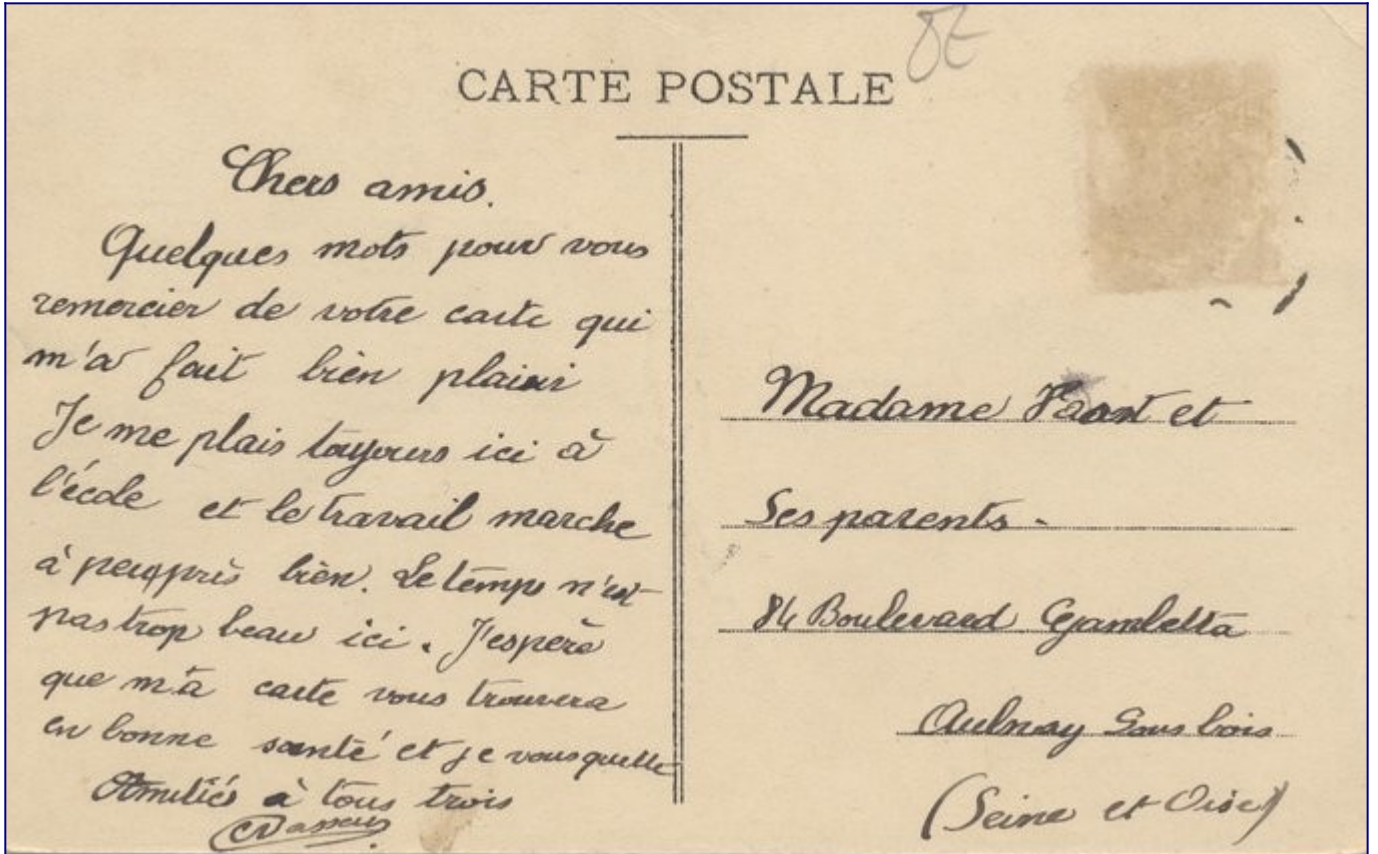 CARTE POSTALE
Chers amis.
Quelques mots pour vous
remercier de votre carte qui
m'a fait bien plaisir
Je me plais toujours ici à
l'école et le travail marche
à peuprès bien. Le temps n'est
pas trop beau ici. J'espère
que ma carte vous trouvera
en bonne santé et je vous quitte
Amitiés à tous trois
Madame et
Ses parents -
84 Boulevard Gambetta
Aulnay Sous bois
(Seine et Oise)